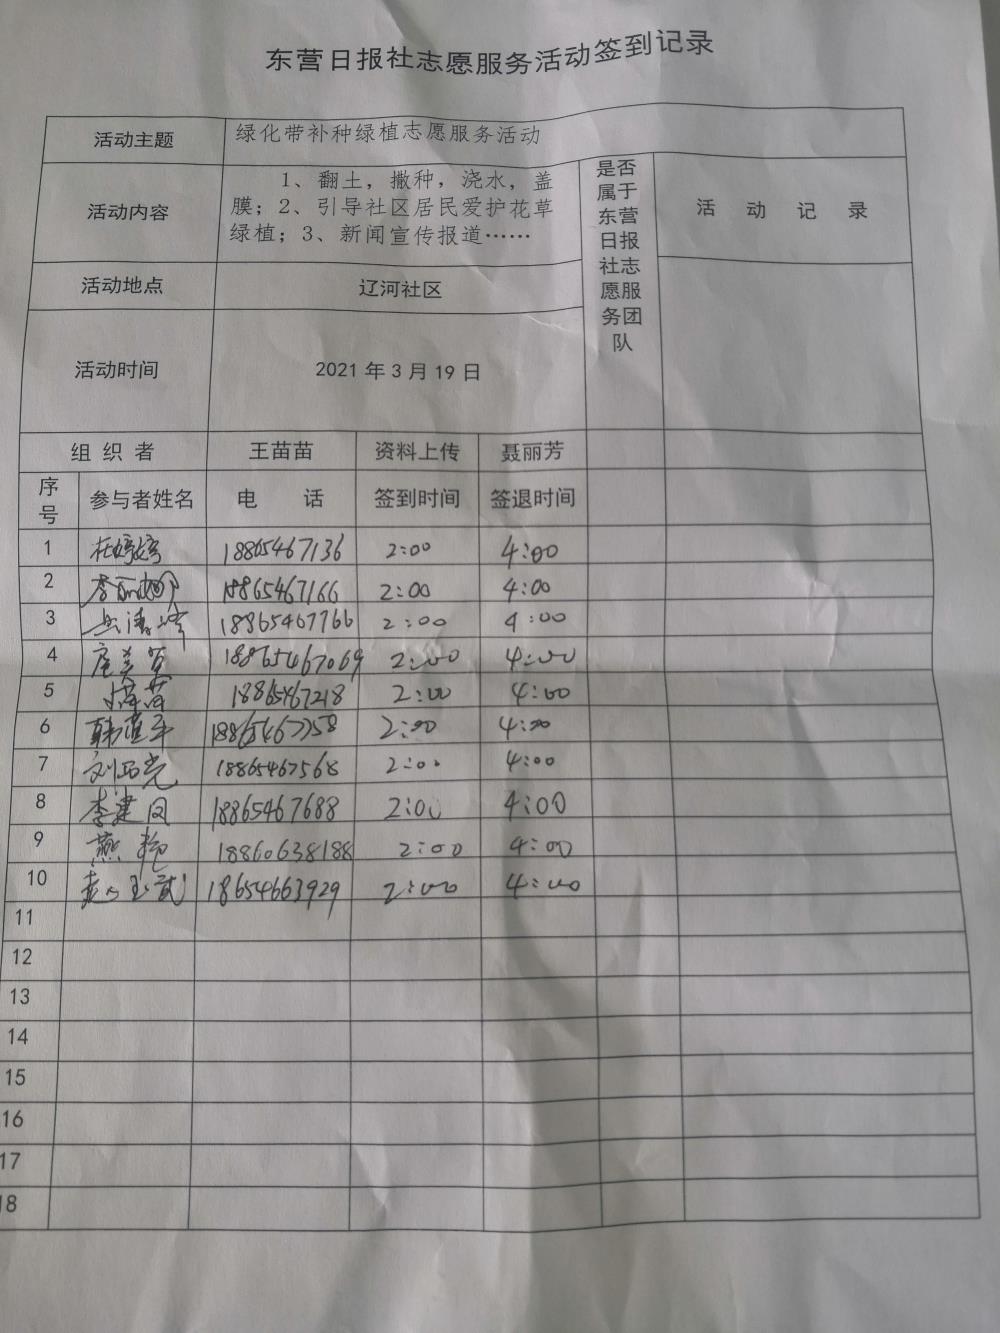 东营日报社志愿服务活动签到记录
活动主题 绿化带补种绿植志愿服务活动
活动内容 1、翻土，撒种，浇水，盖
膜；2、引导社区居民爱护花草
绿植；3、新闻宣传报道……
是否
属于
东营
日报
社志
愿服
务团
队
活 动 记 录
活动地点 辽河社区
活动时间 2021 年 3 月 19 日
组 织 者 王苗苗 资料上传 聂丽芳
序号 参与者姓名 电 话 签到时间 签退时间
1 杜婷婷 18865467136 2:00 4:00
2 18865467166 2:00 4:00
3 18865467766 2:00 4:00
4 18865467069 2:00 4:00
5 18865467218 2:00 4:00
6 2:00 4:00
7 18865467568 2:00 4:00
8 李建国 18865467688 2:00 4:00
9 燕艳 18860638188 2:00 4:00
10 18654663929 2:00 4:00
11
12
13
14
15
16
17
18